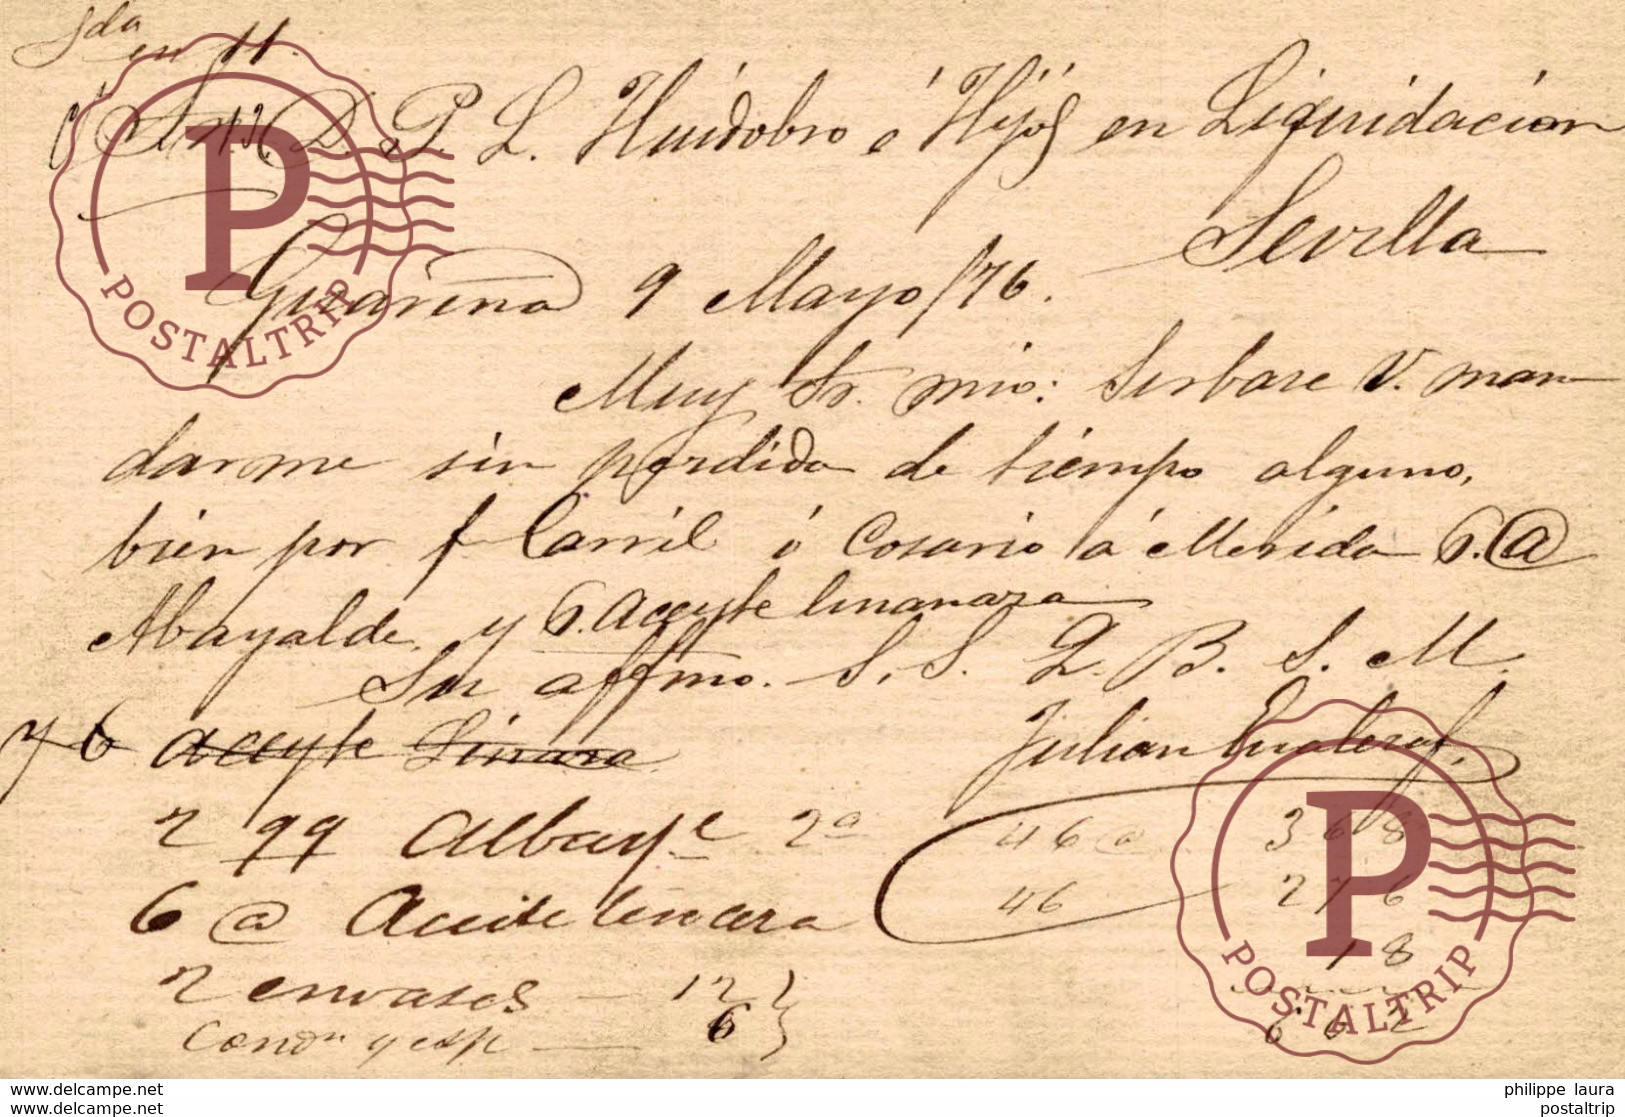 en 11.
D. P. L. Huidobro é Hijos en Liquidacion
Sevilla
Guareña 9 Mayo/76.
Muy Sr. mio: Serbase V. man
darme sin perdida de tiempo alguno,
bien por f Carril ó Cosario á Merida 6. @
Abayalde, y 6. aceyte linanaza
Su affmo. S. S. Q. B. S. M.
y 6 aceyte Linaza
Julian
2 qq Albaye 2a 46 @ 368
6 @ Aceite lincera 46 276
2 envases — 12 18
Condn y esp — 6 662
P
POSTALTRIP
P
POSTALTRIP
www.delcampe.com
www.delcampe.com
philippe laura
postaltrip